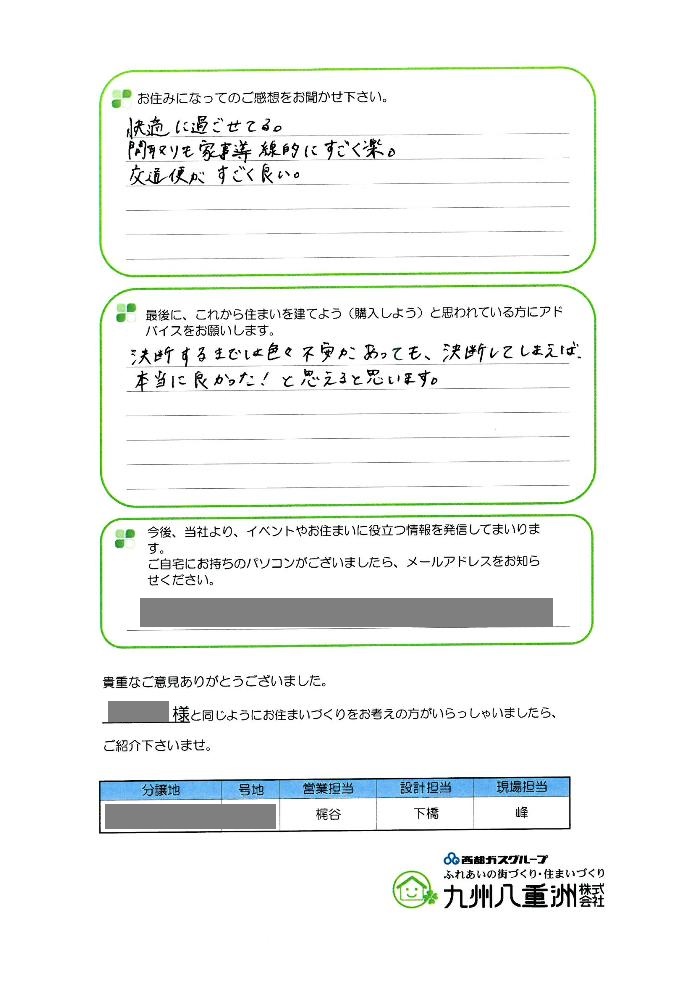 お住みになってのご感想をお聞かせ下さい。
快適に過ごせてる。
間取りも家事導線的にすごく楽。
交通便がすごく良い。
最後に、これから住まいを建てよう（購入しよう）と思われている方にアド
バイスをお願いします。
決断するまでは色々不安があっても、決断してしまえば、
本当に良かった！と思えると思います。
今後、当社より、イベントやお住まいに役立つ情報を発信してまいりま
す。
ご自宅にお持ちのパソコンがございましたら、メールアドレスをお知ら
せください。
貴重なご意見ありがとうございました。
様と同じようにお住まいづくりをお考えの方がいらっしゃいましたら、
ご紹介下さいませ。
分譲地 号地 営業担当 設計担当 現場担当
梶谷 下橋 峰
西部ガスグループ
ふれあいの街づくり・住まいづくり
九州八重洲株式会社